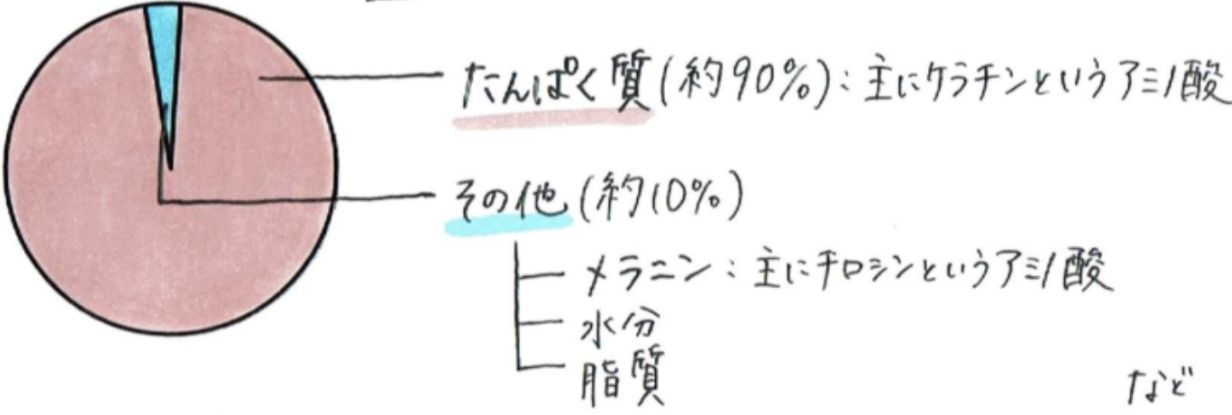 たんぱく質(約90%):主にケラチンというアミノ酸
その他(約10%)
メラニン:主にチロシンというアミノ酸
水分
脂質
など